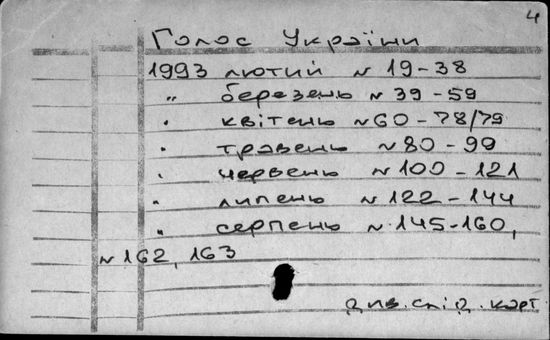 4
Голос України
1993 лютий N 19-38
" березень N 39-59
" квітень N 60-78/79
" травень N 80-99
" червень N 100-121
" липень N 122-144
" серпень N 145-160,
N 162, 163
див. слід. карт.